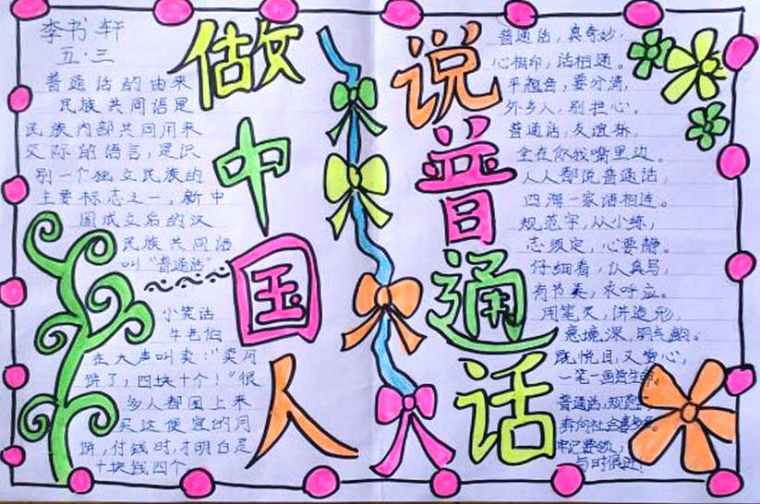 李书轩
五·三
做中国人
普通话的由来
民族共同语是
民族内部共同用来
交际的语言，是识
别一个独立民族的
主要标志之一，新中
国成立后的汉
民族共同语
叫"普通话"
小笑话
牛老伯
在大声叫卖："卖月
饼了，四块十个！"很
多人都围上来
买这便宜的月
饼，付钱时，才明白是
十块钱四个
说普通话
普通话，真奇妙，
心相印，话相通。
平翘音，要分清，
外乡人，别担心。
普通话，友谊桥，
全在你我嘴里边。
人人都说普通话，
四海一家语相连。
规范字，从小练，
志须定，心要静。
仔细看，认真写，
有节奏，求呼应。
用笔灵，讲造形，
意境深，
既悦目，又赏心，
一笔一画
普通话，规范
牢记要领，
与时俱进！